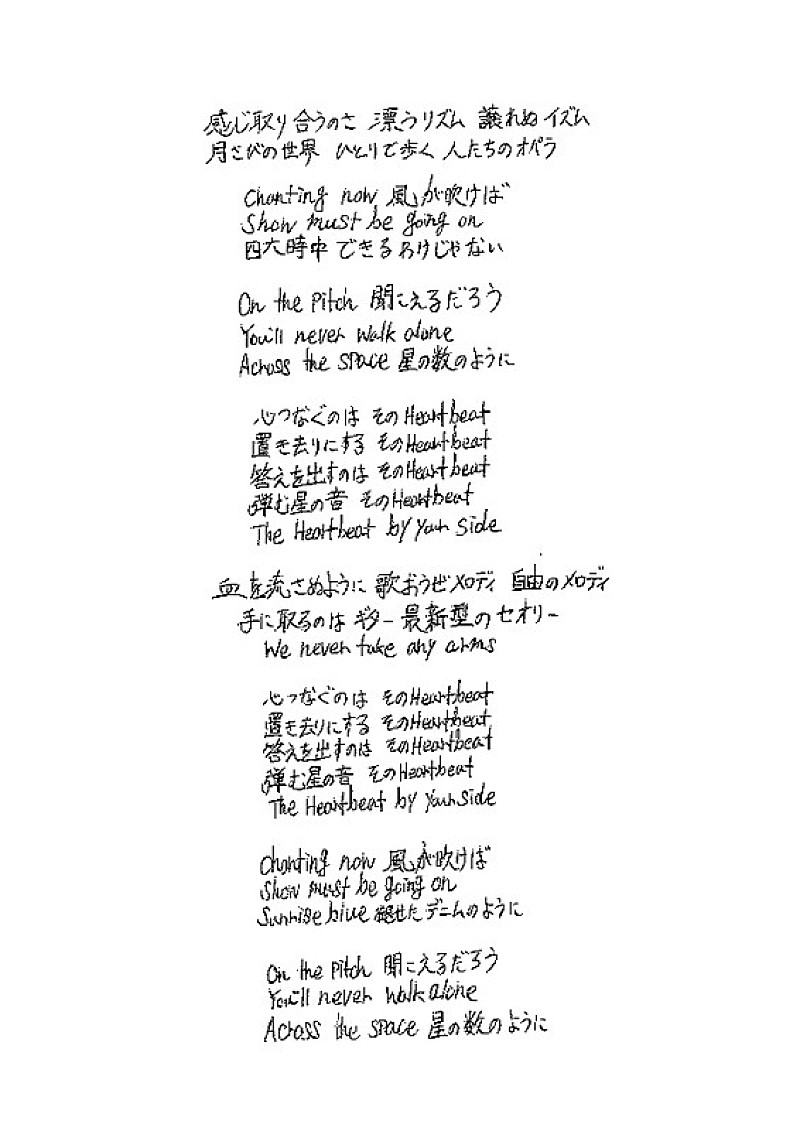 感じ取り合うのさ 漂うリズム 譲れぬイズム
月さびの世界 ひとりで歩く 人たちのオペラ
Chanting now 風が吹けば
Show must be going on
四六時中 できるわけじゃない
On the Pitch 聞こえるだろう
You'll never walk alone
Across the space 星の数のように
心つなぐのは そのHeartbeat
置き去りにする そのHeartbeat
答えを出すのは そのHeartbeat
弾む星の音 そのHeartbeat
The Heartbeat by Your Side
血を流さぬように 歌おうぜメロディ 自由のメロディ
手に取るのは ギター 最新型のセオリー
We never take any arms
心つなぐのは そのHeartbeat
置き去りにする そのHeartbeat
答えを出すのは そのHeartbeat
弾む星の音 そのHeartbeat
The Heartbeat by Your Side
Chanting now 風が吹けば
Show must be going on
Sunrise blue 褪せた デニムのように
On the Pitch 聞こえるだろう
You'll never walk alone
Across the space 星の数のように